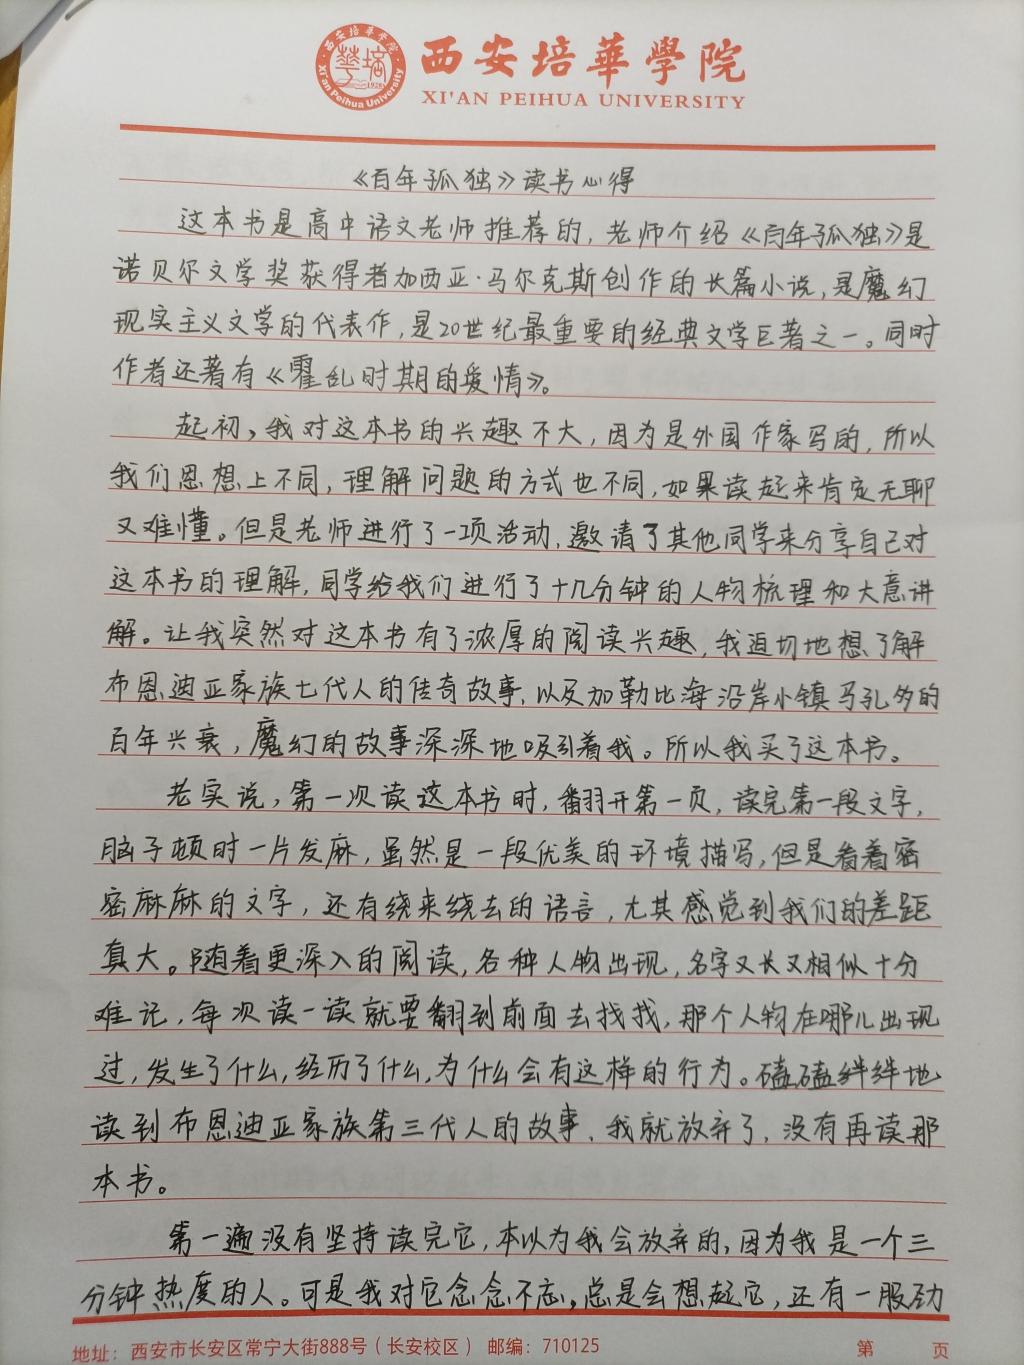 西安培華學院
XI'AN PEIHUA UNIVERSITY
西安培华学院
Xi'an Peihua University
1928
《百年孤独》读书心得
这本书是高中语文老师推荐的，老师介绍《百年孤独》是
诺贝尔文学奖获得者加西亚·马尔克斯创作的长篇小说，是魔幻
现实主义文学的代表作，是20世纪最重要的经典文学巨著之一。同时
作者还著有《霍乱时期的爱情》。
起初，我对这本书的兴趣不大，因为是外国作家写的，所以
我们思想上不同，理解问题的方式也不同，如果读起来肯定无聊
又难懂。但是老师进行了一项活动，邀请了其他同学来分享自己对
这本书的理解，同学给我们进行了十几分钟的人物梳理和大意讲
解。让我突然对这本书有了浓厚的阅读兴趣，我迫切地想了解
布恩迪亚家族七代人的传奇故事，以及加勒比海沿岸小镇马孔多的
百年兴衰，魔幻的故事深深地吸引着我。所以我买了这本书。
老实说，第一次读这本书时，翻开第一页，读完第一段文字，
脑子顿时一片发麻，虽然是一段优美的环境描写，但是看着密
密麻麻的文字，还有绕来绕去的语言，尤其感觉到我们的差距
真大。随着更深入的阅读，各种人物出现，名字又长又相似十分
难记，每次读一读就要翻到前面去找找，那个人物在哪儿出现
过，发生了什么，经历了什么，为什么会有这样的行为。磕磕绊绊地
读到布恩迪亚家族第三代人的故事，我就放弃了，没有再读那
本书。
第一遍没有坚持读完它，本以为我会放弃的，因为我是一个三
分钟热度的人。可是我对它念念不忘，总是会想起它，还有一股劲
地址：西安市长安区常宁大街888号（长安校区） 邮编：710125 第 页